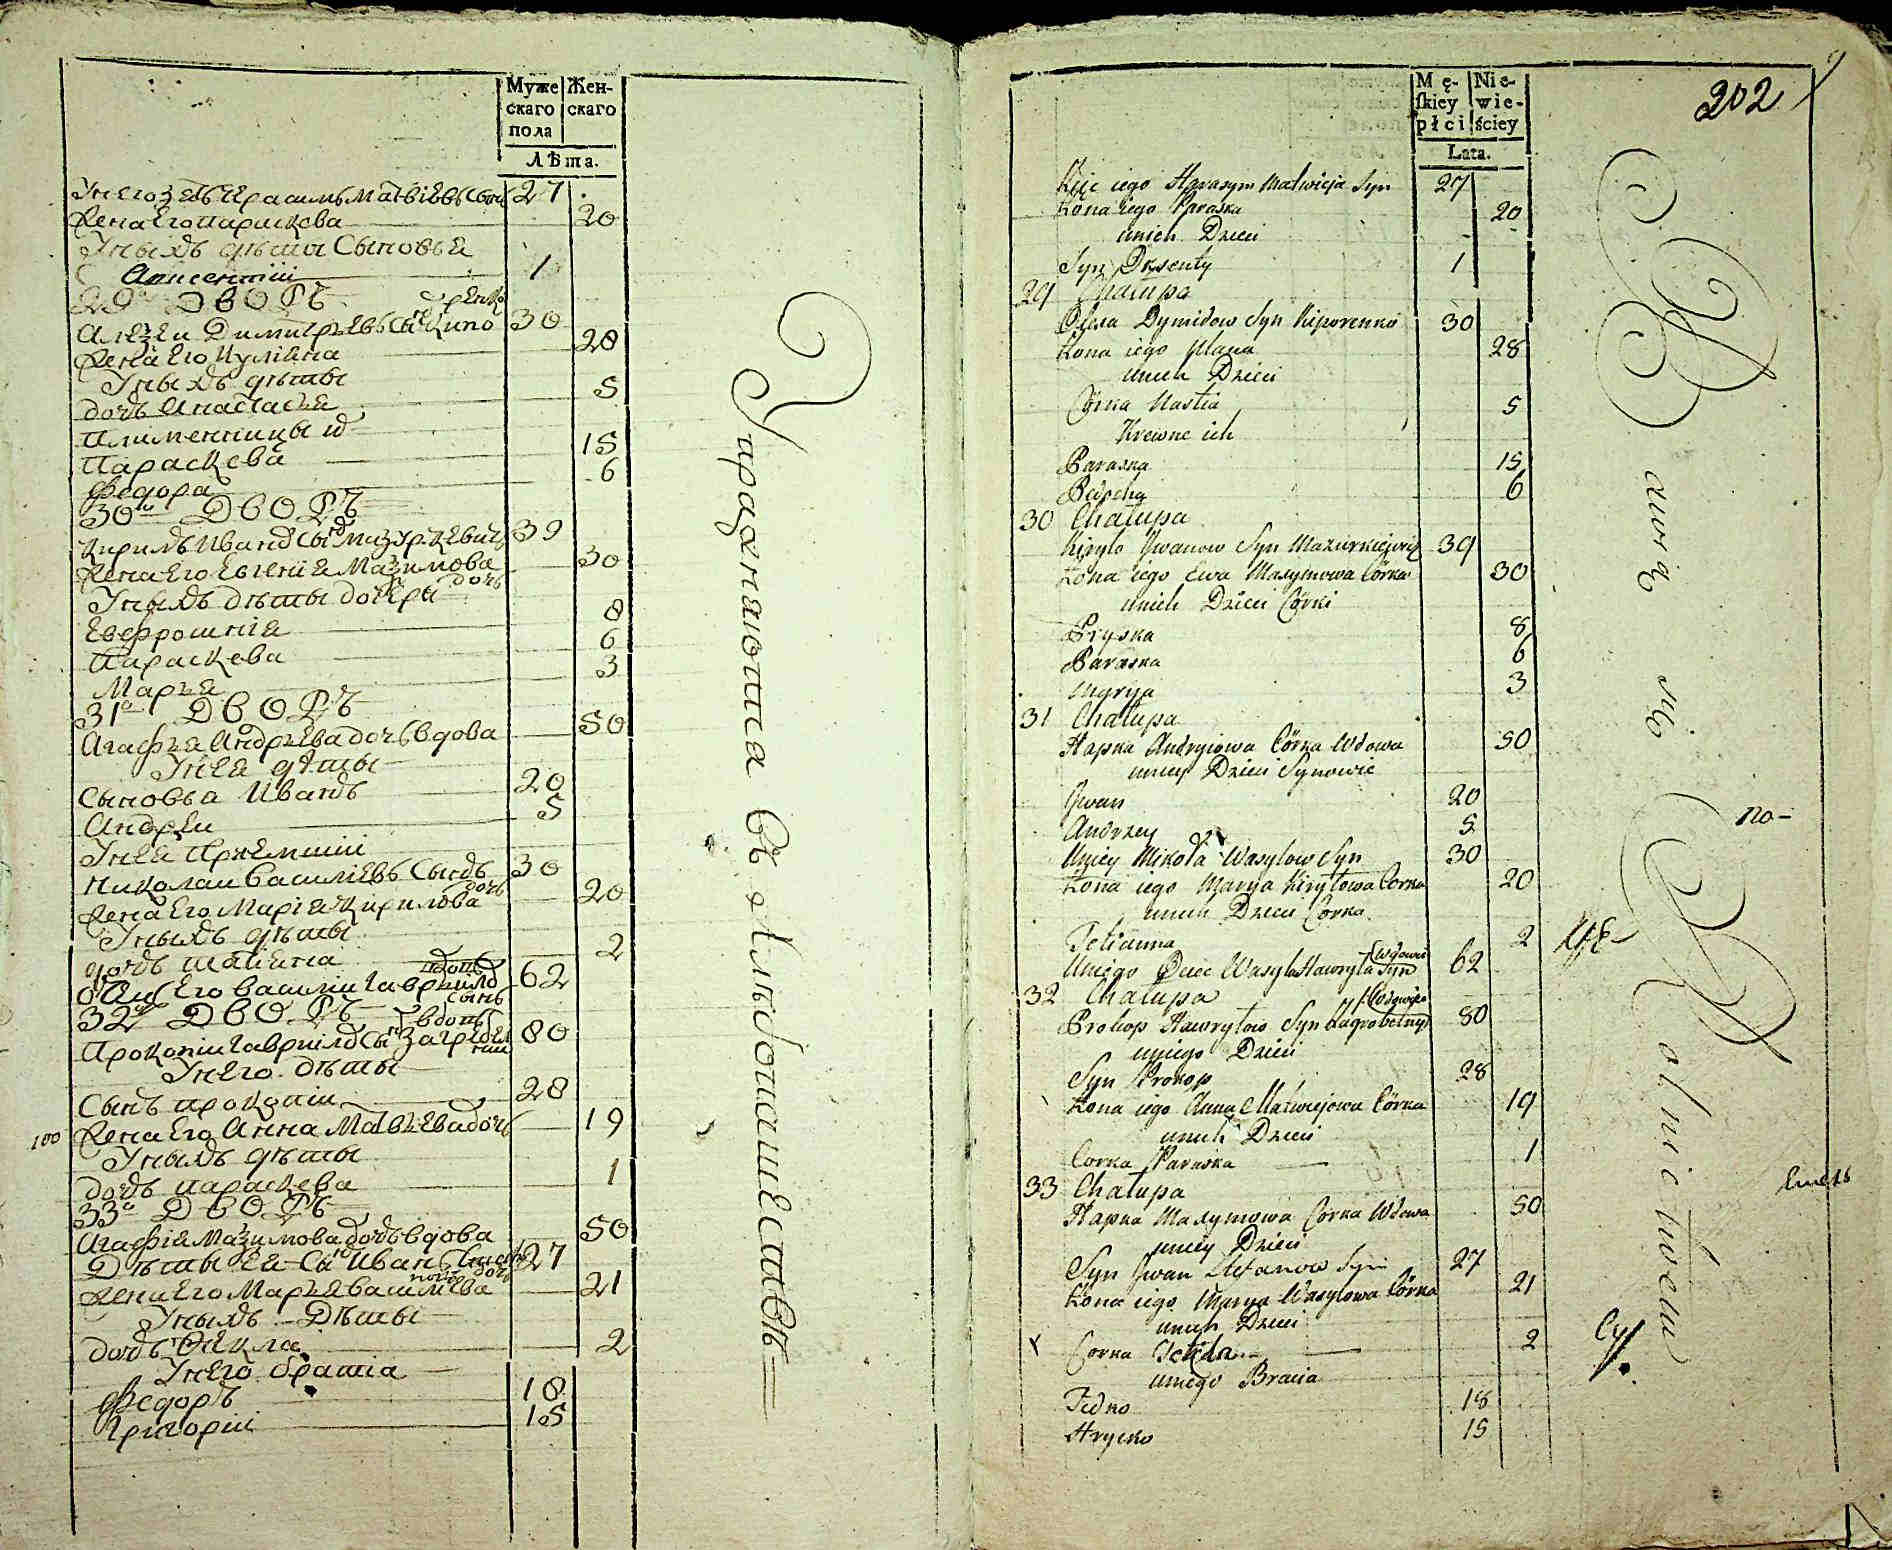 Муже
скаго
пола
Жен-
скаго
Лѣта.
Унего зять Герасимъ Матвіевъ Сынъ 27
Жена Его параскева 20
Уныхъ дѣти Сыновья
Арисентіи 1
29й ДВОРЪ
Алеѯеи Димитріевъ Сынъ Кипоренко 30
Жена Его Уліяна 28
Уныхъ дѣти
дочь Анастасия 5
племенницы их
Параскева 15
Федора 6
30й ДВОРЪ
Кирилъ Ивановъ Сынъ Мазуркевичъ 39
Жена Его Евгения Маѯимова дочь 30
Уныхъ Дѣти дочери
Евфросиния 8
Параскева 6
Марья 3
31й ДВОРЪ
Агафья Андрѣева дочь вдова 50
Унея дѣти
Сыновья Иванъ 20
Андреи 5
Унея Приемшии
Николаи Василиевъ Сынъ 30
Жена Его Мария Кирилова дочь 20
Унихъ дѣти
дочь татияна 2
отецъ Его Василии Гавриловъ Сынъ вдовъ 62
32й ДВОРЪ
Прокопіи Гавриловъ Сынъ Загребелнии вдовъ 80
Унего дѣти
Сынъ прокопіи 28
100 Жена Его Анна Матвѣева дочь 19
Унихъ дѣти
дочь параскева 1
33й ДВОРЪ
Агафія Маѯимова дочь вдова 50
Дѣти Ея Сынъ Иванъ 27
Жена Его Марья василиева дочь 21
Унихъ Дѣти
дочь Ѳекла 2
Унего братиа
Федоръ 18
Григории 15
Упражняюща ся
202
Mę-
skiey
płci
Nie-
wie-
ściey
Lata.
Zięć iego Harasym Matwieja Syn 27
Żona iego Paraska 20
unich Dzieci
Syn Oxenty 1
29 Chałupa
Olexa Dymidow Syn Kiporenko 30
Żona iego Ulana 28
unich Dzieci
Córka Nastia 5
Krewne ich
Paraska 15
6
30 Chałupa
Kiryło Jwanow Syn Mazurkiewicz 39
Żona iego Ewa Maxymowa Córka 30
unich Dzieci Córki
Pryska 8
Paraska 6
Marya 3
31 Chałupa
Hapka Andryiowa Córka Wdowa 50
uniey Dzieci Synowie
Jwan 20
Andrzey 5
Uniey Mikoła Wasylow Syn 30
Żona iego Marya Kiryłowa Corka 20
unich Dzieci Corka
Tetianna 2
Uniego Ociec Wasyl Hawryła Syn Wdowiec 62
32 Chałupa
Prokop Hawryłow Syn Zagrobelny Wdowiec 80
uniego Dzieci
Syn Prokop 28
Żona iego Anna Matwiejowa Córka 19
unich Dzieci
Corka Paraska 1
33 Chałupa
Hapka Maxymowa Corka Wdowa 50
uniey Dzieci
Syn Jwan Stefanow Syn 27
Żona iego Marya Wasylowa Córka 21
unich Dzieci
Corka Tekla 2
uniego Bracia
Fedko 18
Hrycko 15
Bawią się Rolnictwem
no-